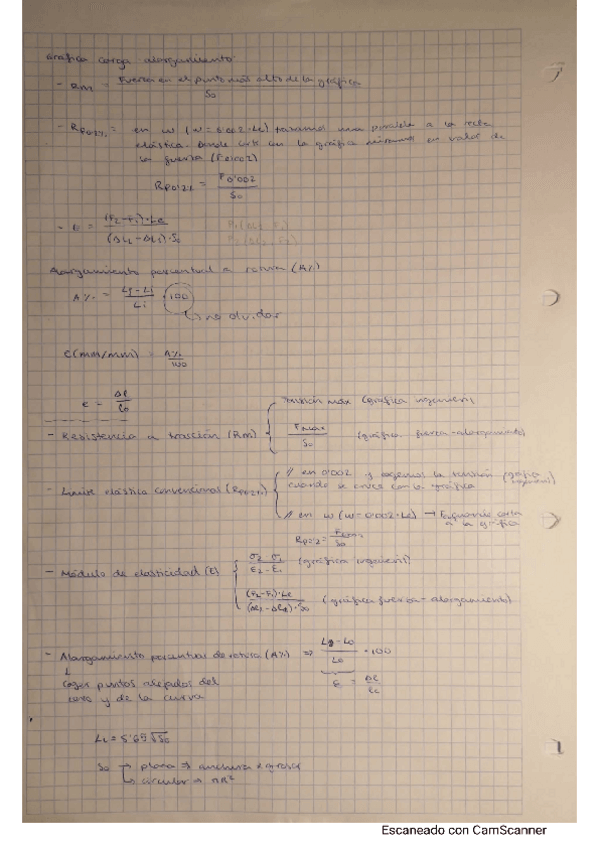 Gráfica carga alargamiento:
- Rm = Fuerza en el punto más alto de la gráfica / S0
- Rp0'2% = en w (w = 0'002·Lc) trazamos una paralela a la recta
elástica. Donde corte con la gráfica el valor de
la fuerza (F0'002)
Rp0'2% = F0'002 / S0
- E = (F2-F1)·Lc / (ΔL2-ΔL1)·S0
P1(ΔL1, F1)
P2(ΔL2, F2)
Alargamiento porcentual a rotura (A%)
A% = Lf-Li / Li · 100
↳ no olvidar
E(mm/mm) = A% / 100
e = Δl / l0
- Resistencia a tracción (Rm) { Tensión máx (gráfica ingenieril
Fmáx / S0 (gráfica fuerza-alargamiento)
- Límite elástico convencional (Rp0'2%) { // en 0'002 y cogemos la tensión (gráfica ingenieril)
cuando se cruce con la gráfica
// en w (w=0'002·Lc) → Fcuando corta
a la gráfica
Rp0'2 = / S0
- Módulo de elasticidad (E) { σ2 σ1 / E2-E1 (gráfica ingenieril)
(F2-F1)·Lc / · S0 (gráfica fuerza-alargamiento)
- Alargamiento porcentual de rotura (A%) ⇒ Lf-L0 / L0 · 100
↳
Coger puntos alejados del
cero y de la curva
ε = Δl / l0
Lc = 5'65√S0
S0 → plana ⇒ anchura x grosor
↳ circular ⇒ πR²
Escaneado con CamScanner